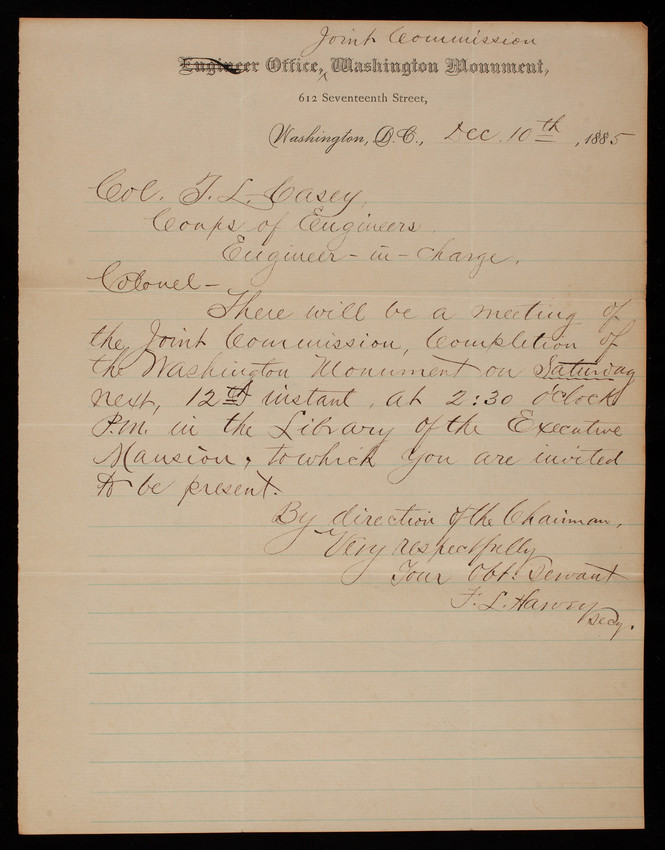 Joint Commission
Engineer Office, Washington Monument,
612 Seventeenth Street,
Washington, D.C., Dec. 10th, 1885
Col. T. L. Casey,
Corps of Engineers.
Engineer-in-charge.
Colonel-
There will be a meeting of
the Joint Commission, Completion of
the Washington Monument on Saturday
next, 12th instant, at 2:30 o'clock
P.M. in the Library of the Executive
Mansion, to which you are invited
to be present.
By direction of the Chairman,
Very respectfully
Your Obt. Servant
F. L. Harvey
Secy.